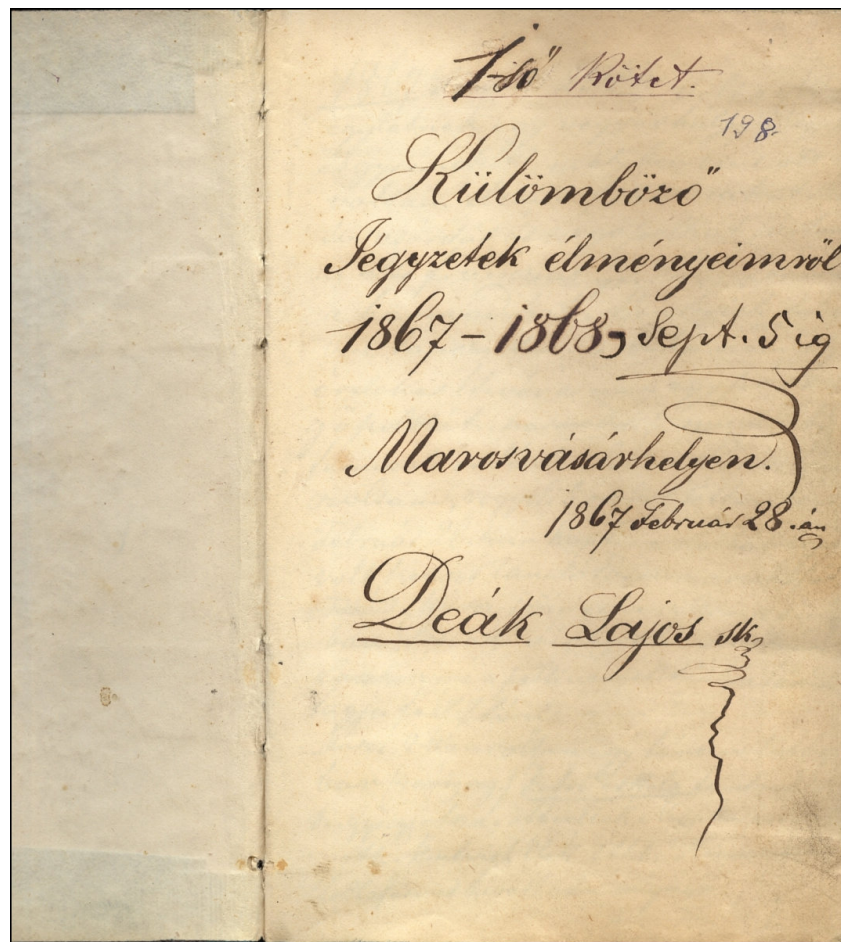 1-ső Kötet.
198.
Külömböző
Jegyzetek élményeimről
1867 – 1868, Sept. 5 ig
Marosvásárhelyen.
1867 Február 28.-án
Deák Lajos sk.